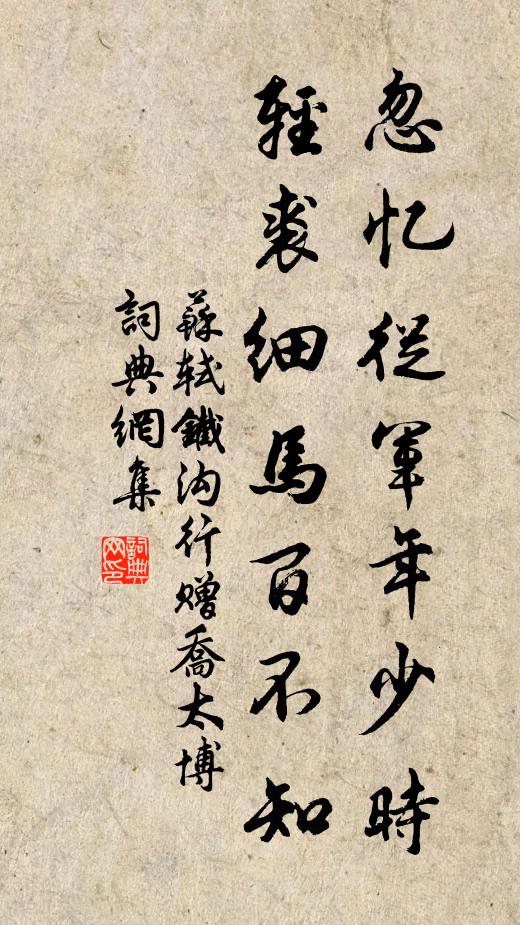 忽忆從軍年少時
輕裘細馬百不知
蘇軾鐵沟行赠喬太博
詞典網集
詞典网印